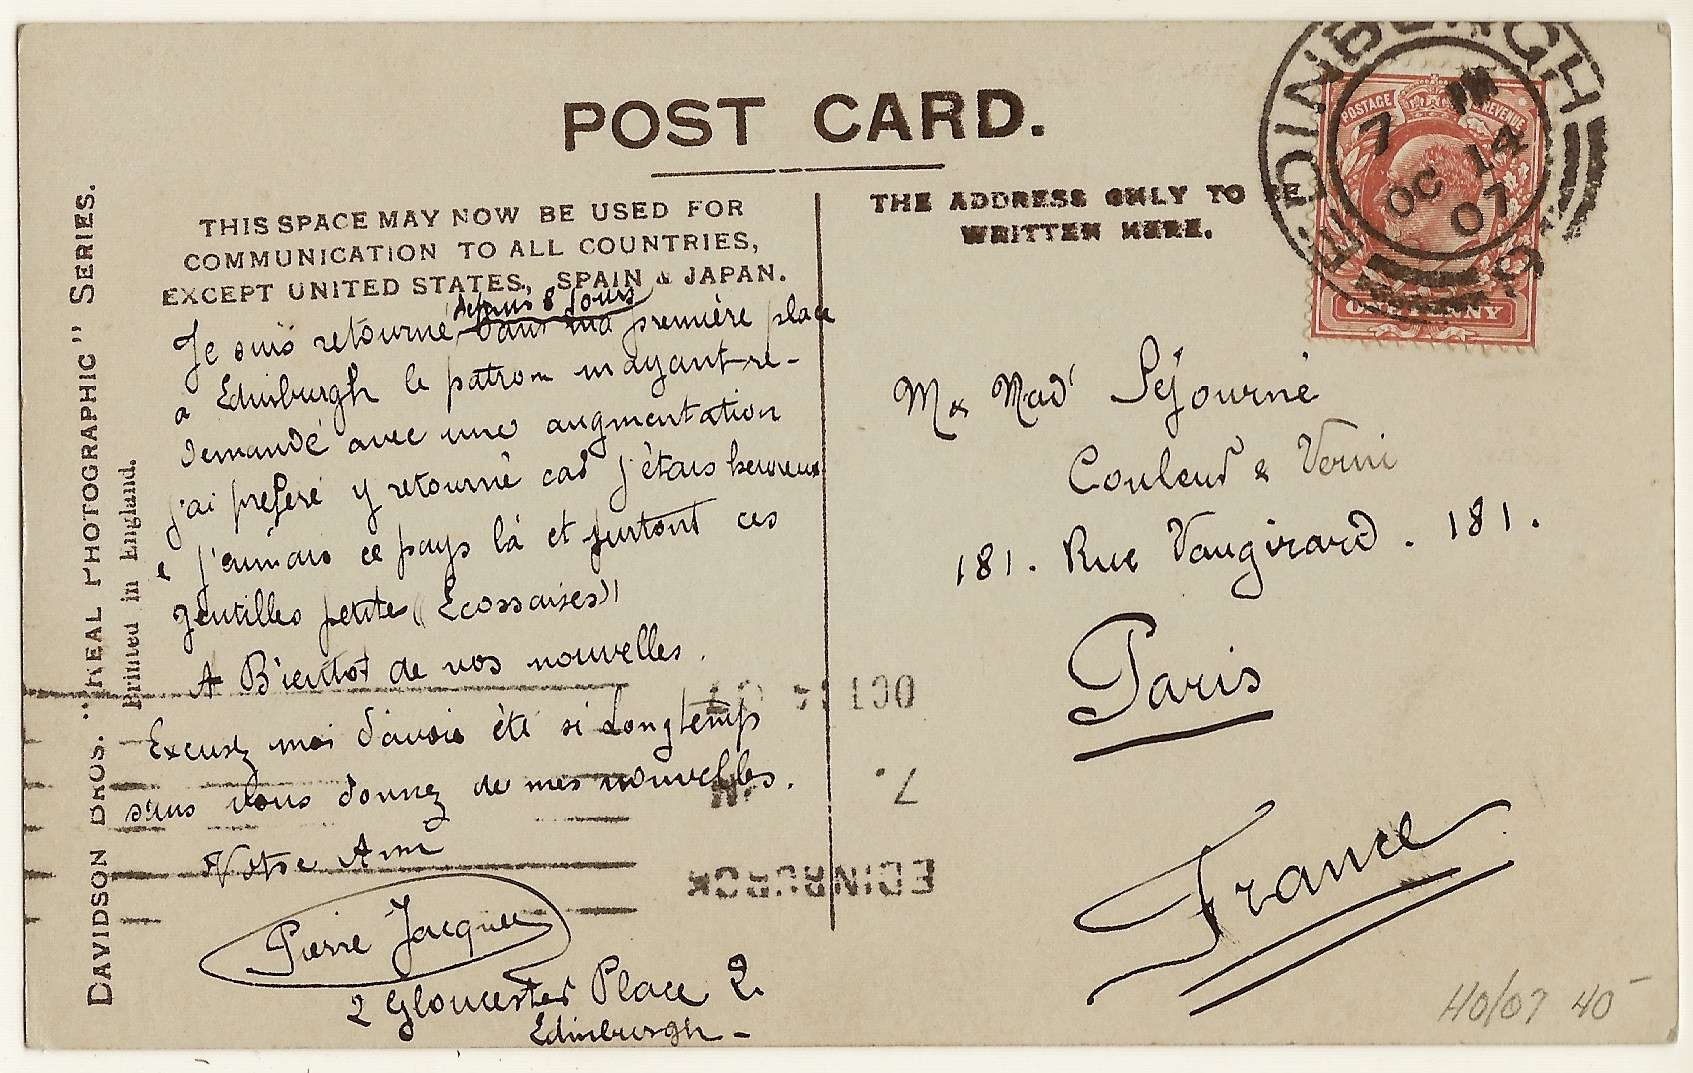 POST CARD.
THIS SPACE MAY NOW BE USED FOR
COMMUNICATION TO ALL COUNTRIES,
EXCEPT UNITED STATES, SPAIN & JAPAN.
THE ADDRESS ONLY TO BE
WRITTEN HERE.
EDINBURGH
7 PM
OC 14
07
POSTAGE REVENUE
ONE PENNY
depuis 8 jours
Je suis retourné dans ma première place
a Edinburgh le patron mayant re-
demandé avec une augmentation
j'ai preferé y retourné car j'étais heureux
& j'aimais ce pays là et surtout ces
gentilles petite "Ecossaises"!
A Bientot de vos nouvelles.
Excusez moi d'avoir été si Longtemp
sans vous donnez de mes nouvelles.
Votre Ami
Pierre Jacques
2 Gloucester Place 2.
Edinburgh -
M & Mad Séjourné
Couleur & Verni
181. Rue Vaugirard. 181.
Paris
France
OCT 14 07
7.
EDINBURGH
40/07 40
DAVIDSON BROS. "REAL PHOTOGRAPHIC" SERIES.
Printed in England.